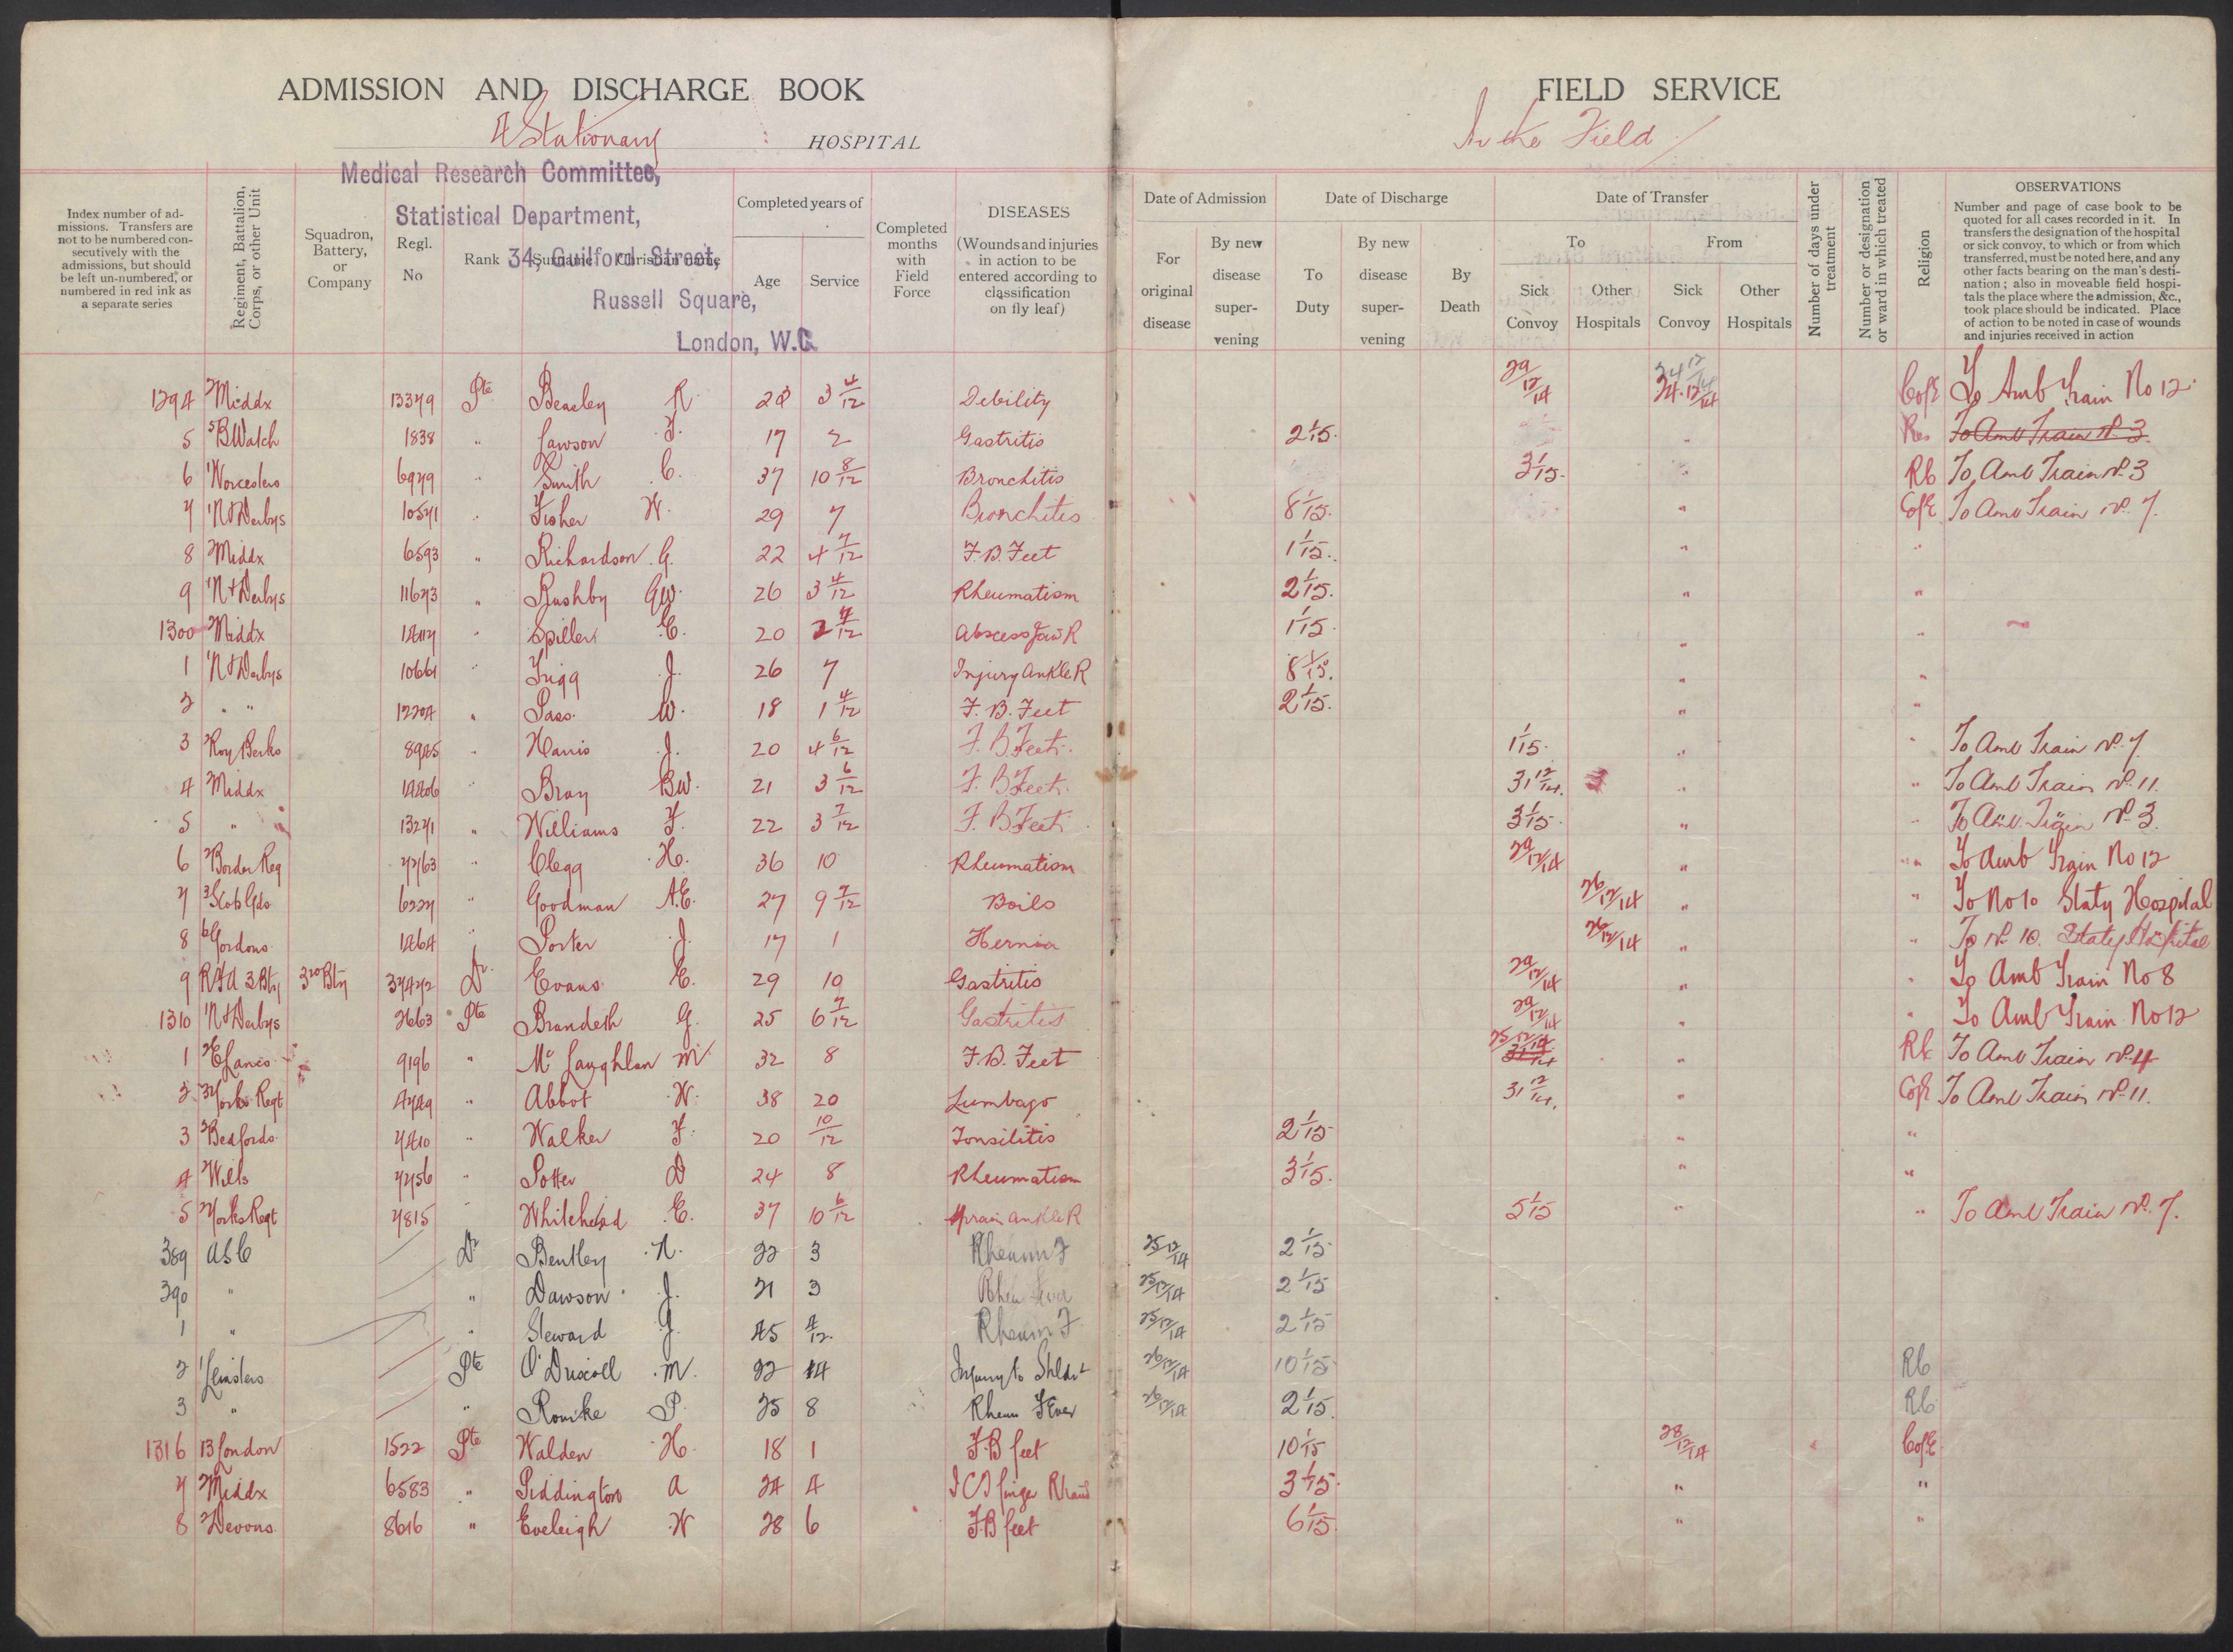 ADMISSION AND DISCHARGE BOOK
4 Stationary HOSPITAL
Medical Research Committee,
Statistical Department,
34, Guilford Street,
Russell Square,
London, W.C.
FIELD SERVICE
In the Field
Index number of admissions. Transfers are not to be numbered consecutively with the admissions, but should be left un-numbered, or numbered in red ink as a separate series
Regiment, Battalion, Corps, or other Unit
Squadron, Battery, or Company
Regl. No
Rank
Surname
Christian Name
Completed years of
Age
Service
Completed months with Field Force
DISEASES
(Wounds and injuries in action to be entered according to classification on fly leaf)
Date of Admission
For original disease
By new disease supervening
Date of Discharge
To Duty
By new disease supervening
By Death
Date of Transfer
To
Sick Convoy
Other Hospitals
From
Sick Convoy
Other Hospitals
Number of days under treatment
Number or designation or ward in which treated
Religion
OBSERVATIONS
Number and page of case book to be quoted for all cases recorded in it. In transfers the designation of the hospital or sick convoy, to which or from which transferred, must be noted here, and any other facts bearing on the man's destination; also in moveable field hospitals the place where the admission, &c., took place should be indicated. Place of action to be noted in case of wounds and injuries received in action
1294 2 Middx 13379 Pte Beasley R. 28 3 4/12 Debility 29/12/14 24.12/14 CofE To Amb Train No 12
5 5 B Watch 1838 " Lawson F. 17 2 Gastritis 2 1/15. " To Amb Train No 3
6 1 Worcesters 6979 " Smith C. 37 10 8/12 Bronchitis 3 1/15. " RC To Amb Train No 3
7 1 N&Derbys 10571 " Fisher W. 29 7 Bronchitis 8 1/15. " CofE To Amb Train No 7.
8 2 Middx 6593 " Richardson G. 22 4 7/12 F.B. Feet 1 1/15. " "
9 1 N&Derbys 11673 " Rushby GW. 26 3 4/12 Rheumatism 2 1/15. " "
1300 2 Middx " Spiller C. 20 2 4/12 Abscess Jaw R 1 1/15. " "
1 1 N&Derbys 10661 " Trigg J. 26 7 Injury Ankle R 8 1/15. " "
2 " " 12204 " Pass. W. 18 1 4/12 F.B. Feet 2 1/15. " "
3 2 Roy Berks " Harris J. 20 4 6/12 F.B Feet. 1 1/15. " " To Amb Train No 7
4 2 Middx " Bray BW. 21 3 6/12 F.B Feet. 31 12/14. " " To Amb Train No 11.
5 " 13271 " Williams F. 22 3 7/12 F.B Feet 3 1/15. " " To Amb. Train No 3.
6 2 Border Reg 7763 " Clegg H. 36 10 Rheumatism 29/12/14 " " To Amb Train No 12
7 Scots Gds 6227 " Goodman A.E. 27 9 7/12 Boils 26/12/14 " " To No 10 Staty Hospital
8 6 Gordons " Porter J. 17 1 Hernia 26/12/14 " " To No 10. Staty Hospital
9 RFA 3 Bty 3rd Bty 37472 Dr. Evans. E. 29 10 Gastritis 29/12/14 " " To Amb Train No 8
1310 1 N&Derbys Pte G. 25 6 7/12 Gastritis 29/12/14 " " To Amb Train No 12
1 2 E Lancs 9196 " Mc Laughlan M 32 8 F.B. Feet 25/12/14 " RC To Amb Train No 4
2 Yorks Regt " Abbot W. 38 20 Lumbago 31 12/14. " CofE To Amb Train No 11.
3 2 Bedfords " Walker F. 20 10/12 Tonsilitis 2 1/15 " "
4 2 Wilts 7756 " Potter D 24 8 Rheumatism 3 1/15. " "
5 2 Yorks Regt 7815 " Whitehead E. 37 10 6/12 Sprain Ankle R 5 1/15 " " To Amb Train No 7.
389 ASC Dr Bentley N. 22 3 Rheum F 25/12/14 2 1/15
390 " " Dawson J. 21 3 Rheu Fever 25/12/14 2 1/15
1 " " Steward J. 45 4/12. Rheum F. 25/12/14 2 1/15
2 1 Leinsters Pte O'Driscoll M. 22 14 Injury to Shldr 26/12/14 10 1/15 RC
3 " " Rourke P. 25 8 Rheum Fever 26/12/14 2 1/15. RC
1316 13 London 1522 Pte Walden H. 18 1 F.B feet 10 1/15 28/12/14 CofE
7 2 Middx 6583 " Piddington A 24 4 ICT finger R hand 3 1/15. " "
8 2 Devons 8616 " Eveleigh W 28 6 F.B feet 6 1/15. " "